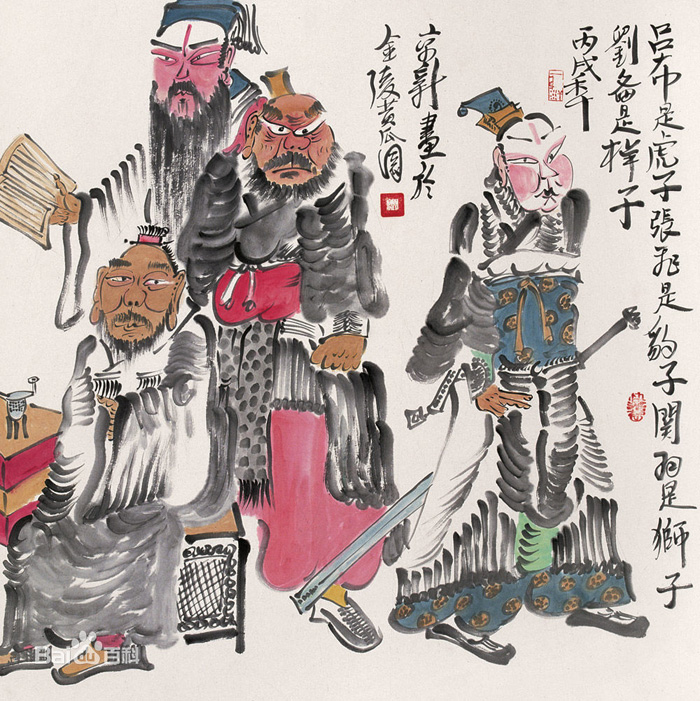 吕布是虎子張飛是豹子關羽是獅子
劉备是样子
丙戌年
京新畫於
金陵黄瓜園
Baidu百科